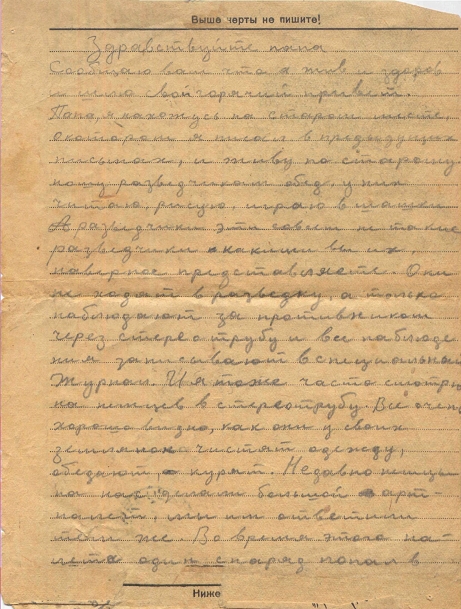 Выше черты не пишите!
Здравствуйте папа
Сообщаю вам что я жив и здоров
и шлю свой горячий привет.
Папа я нахожусь на старом месте,
о котором я писал в предыдущих
письмах, и живу по старому
ношу разведчикам обед, у них
читаю, рисую, играю в шашки
А разведчики эти совсем не такие
разведчики какими вы их,
наверное представляете. Они
не ходят в разведку, а только
наблюдают за противником
через стереотрубу и все наблюде
ния записывают в специальный
журнал. И я тоже часто смотрю
на немцев в стереотрубу. Всё очень
хорошо видно, как они у своих
землянок чистят одежду,
обедают курят. Недавно немцы
на нас делали большой арт-
налёт, мы им ответили
тем же. Во время этого на-
лета один снаряд попал в
Ниже